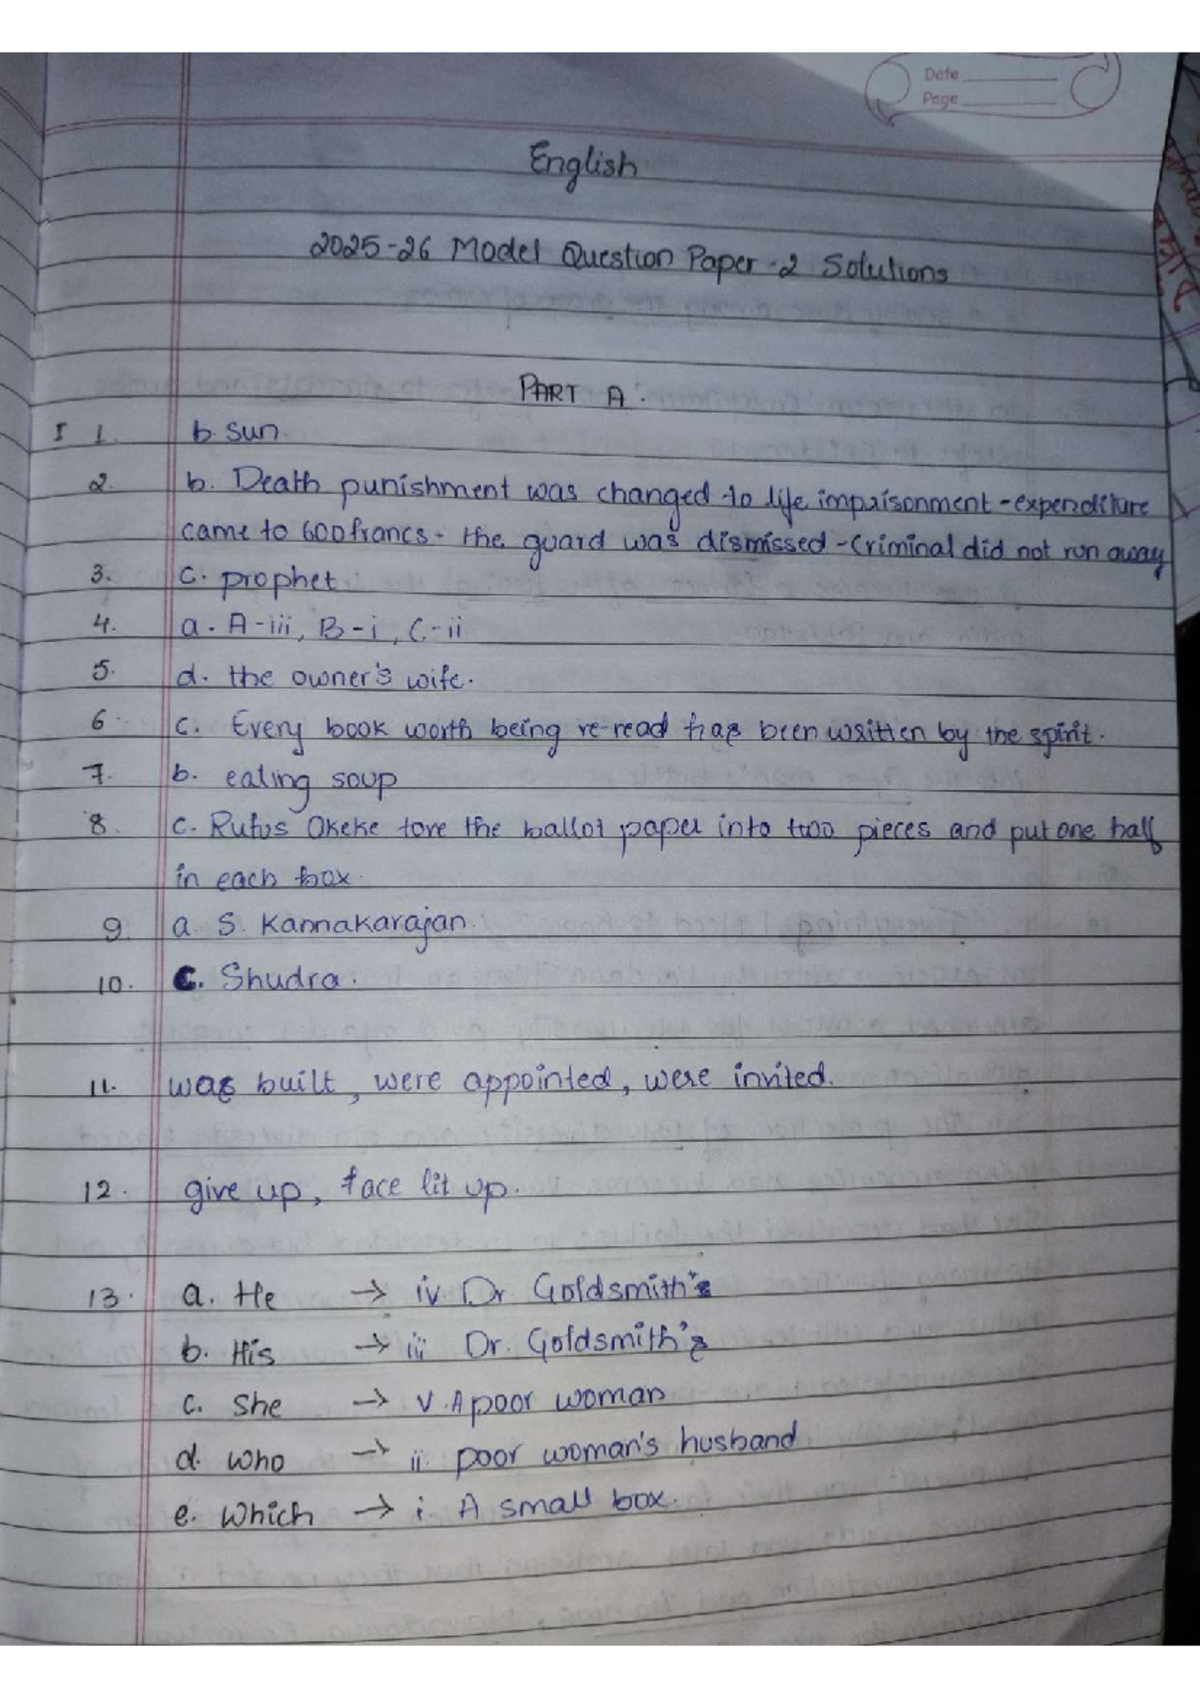 Date
Page
English
2025-26 Model Question Paper-2 Solutions
PART A.
I 1. b. sun.
2. b. Death punishment was changed to life impraisonment - expenditure
came to 600francs - the guard was dismissed - Criminal did not run away
3. c. prophet
4. a. A-iii, B-i, C-ii
5. d. the owner's wife.
6. c. Every book worth being re-read has been written by the spirit.
7. b. eating soup
8. c. Rufus Okeke tore the ballot paper into two pieces and put one half
in each box.
9. a. S. Kannakarajan.
10. C. Shudra.
11. was built, were appointed, were invited.
12. give up, face lit up.
13. a. He → iv. Dr Goldsmith's
b. His → iii Dr. Goldsmith's
c. She → v. A poor woman
d. who → ii. poor woman's husband
e. which → i. A small box.